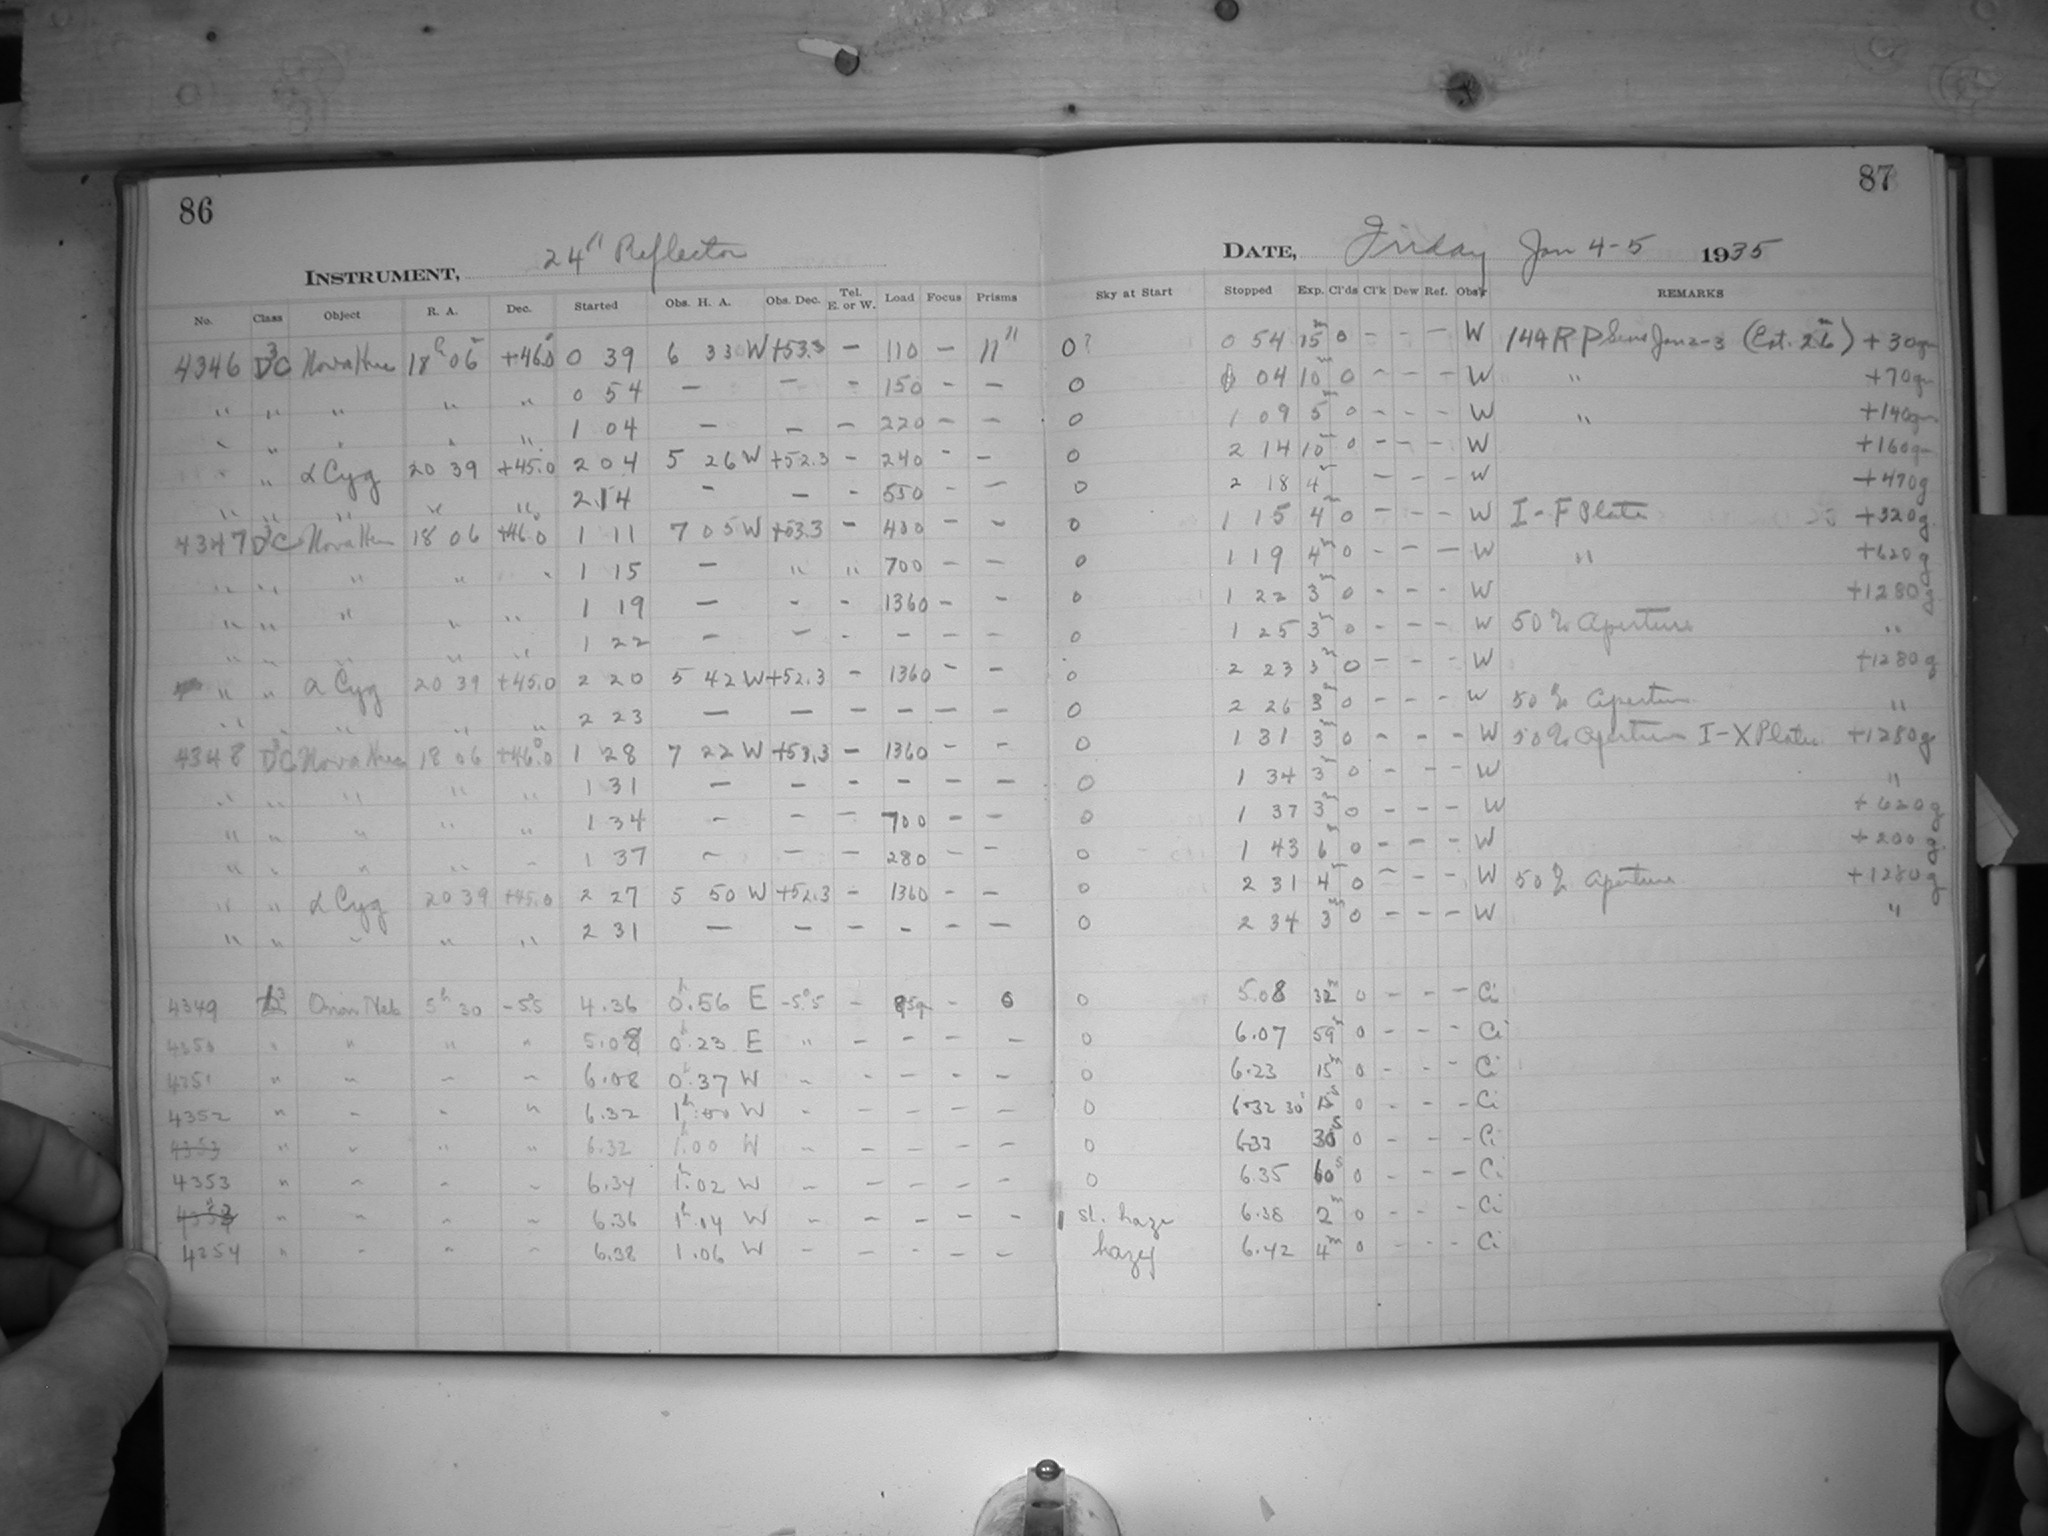 86
87
INSTRUMENT, 24" Reflector
DATE, Friday Jan 4-5 1935
No. Class Object R. A. Dec. Started Obs. H. A. Obs. Dec. Tel. E. or W. Load Focus Prisms Sky at Start Stopped Exp. Cl'ds Cl'k Dew Ref. Obs'r REMARKS
4346 D³C Nova Her 18h 06m +46.0 0 39 6 33 W +53.3 – 110 – 11" 0? 0 54 15m 0 – – – W 144 R P Sens Jan 2-3 (Cat. 26m) + 30gm
" " " " " 0 54 – – – 150 – – 0 1 04 10m 0 – – – W " +70gm
" " " " " 1 04 – – – 220 – – 0 1 09 5m 0 – – – W " +140gm
" " α Cyg 20 39 +45.0 2 04 5 26 W +52.3 – 240 – – 0 2 14 10m 0 – – – W +160gm
" " " " " 2 14 – – – 550 – – 0 2 18 4m – – – W +470g
4347 D³C Nova Her 18 06 +46.0 1 11 7 05 W +53.3 – 400 – – 0 1 15 4m 0 – – – W I-F Plate +320g
" " " " " 1 15 – " " 700 – – 0 1 19 4m 0 – – – W " +620g
" " " " " 1 19 – – – 1360 – – 0 1 22 3m 0 – – – W +1280g
" " " " " 1 22 – – – – – – 0 1 25 3m 0 – – – W 50% Aperture "
" " α Cyg 20 39 +45.0 2 20 5 42 W +52.3 – 1360 – – 0 2 23 3m 0 – – – W +1280g
" " " " " 2 23 – – – – – – 0 2 26 3m 0 – – – W 50% Aperture "
4348 D³C Nova Her 18 06 +46.0 1 28 7 22 W +53.3 – 1360 – – 0 1 31 3m 0 – – – W 50% Aperture I-X Plate +1280g
" " " " " 1 31 – – – – – – 0 1 34 3m 0 – – – W "
" " " " " 1 34 – – – 700 – – 0 1 37 3m 0 – – – W +620g
" " " " – 1 37 – – – 280 – – 0 1 43 6m 0 – – – W +200g
" " α Cyg 20 39 +45.0 2 27 5 50 W +52.3 – 1360 – – 0 2 31 4m 0 – – – W 50% Aperture +1280g
" " – " " 2 31 – – – – – – 0 2 34 3m 0 – – – W "
4349 Orion Neb 5h 30 -5°5 4.36 0h.56 E -5°5 – – 6 0 5.08 32m 0 – – – Ci
4350 " " " " 5.08 0h.23 E " – – – – 0 6.07 59m 0 – – – Ci
4351 " – – – 6.08 0h.37 W – – – – – 0 6.23 15m 0 – – – Ci
4352 " – – " 6.32 1h.00 W – – – – – 0 6.32 30s 0 – – – Ci
4353 " – " " 6.32 1h.00 W – – – – – 0 6.33 30s 0 – – – Ci
4353 " – – – 6.34 1h.02 W – – – – – 0 6.35 60s 0 – – – Ci
" – – – 6.36 1h.04 W – – – – – sl. haze 6.38 2m 0 – – – Ci
4354 " – – – 6.38 1.06 W – – – – – hazy 6.42 4m 0 – – – Ci